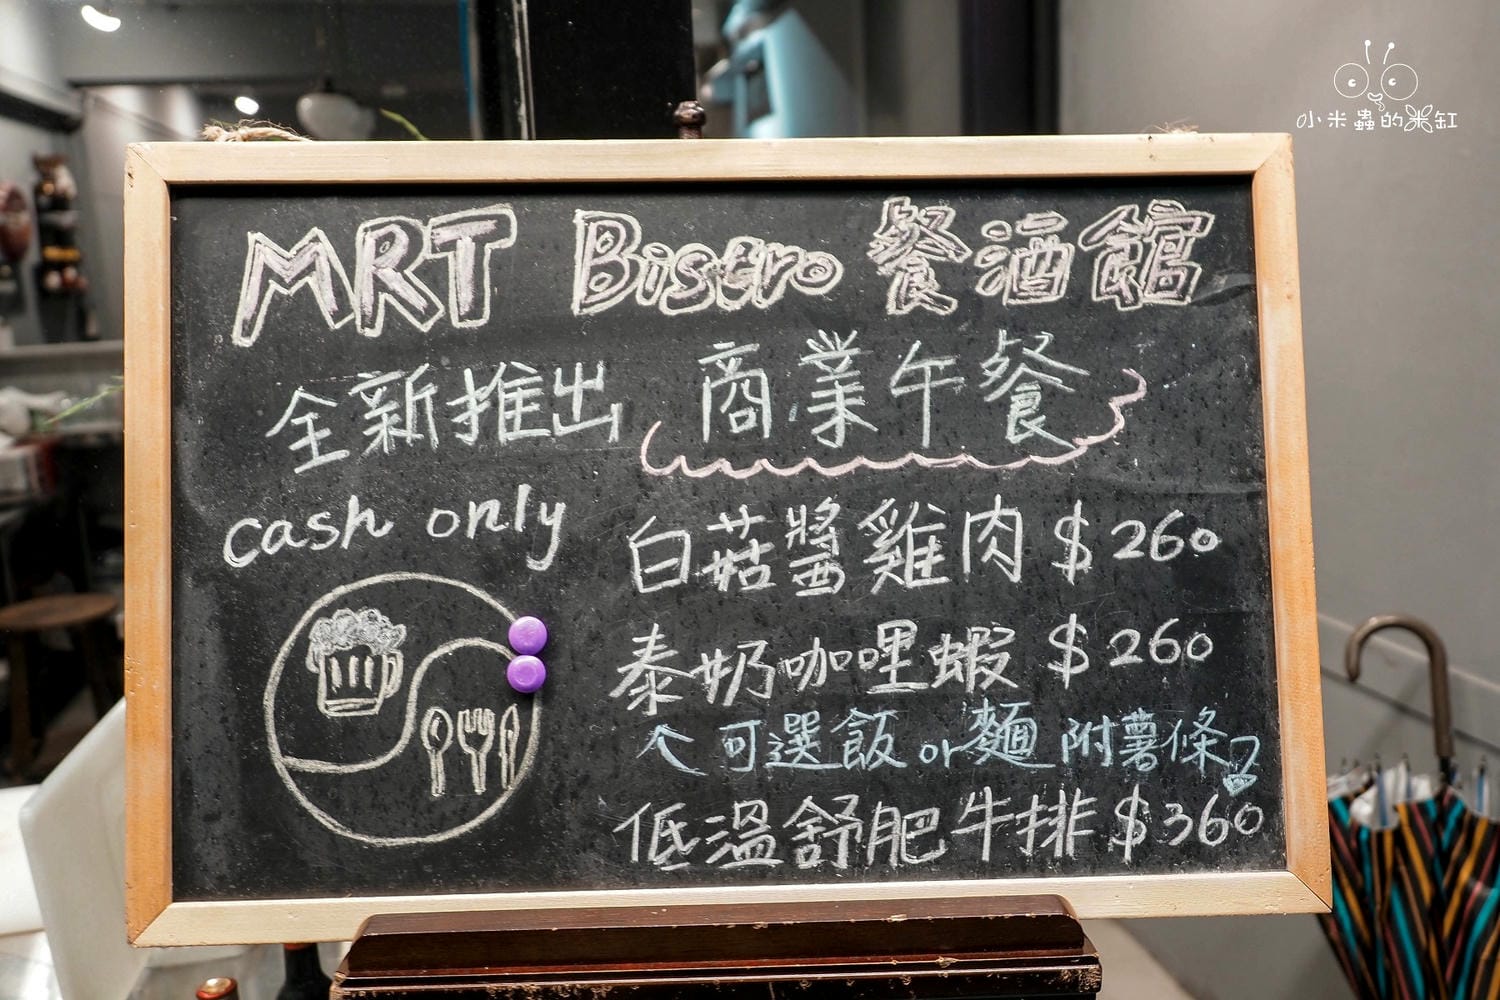 小米蟲的米缸
MRT Bistro 餐酒館
全新推出 商業午餐
cash only
白菇醬雞肉 $260
泰奶咖哩蝦 $260
可選飯 or 麵 附薯條
低溫舒肥牛排 $360